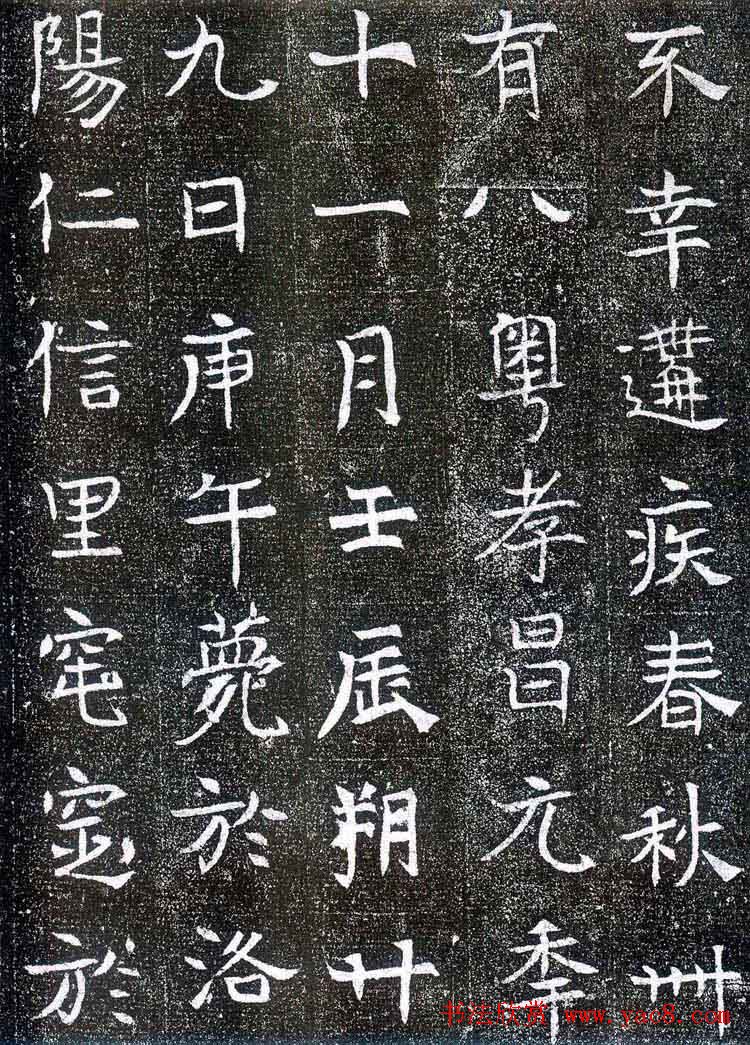 不幸遘疾春秋卌
有八粤孝昌元季
十一月壬辰朔廿
九日庚午薨於洛
陽仁信里窀窆於
书法欣赏 www.yac8.com